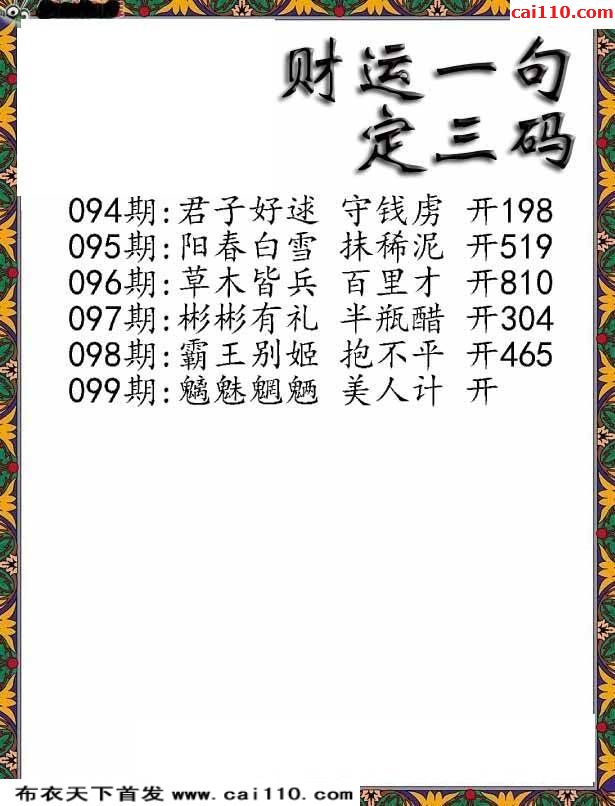 cai110.com
财运一句
定三码
094期:君子好逑 守钱虏 开198
095期:阳春白雪 抹稀泥 开519
096期:草木皆兵 百里才 开810
097期:彬彬有礼 半瓶醋 开304
098期:霸王别姬 抱不平 开465
099期:魑魅魍魉 美人计 开
布衣天下首发 www.cai110.com